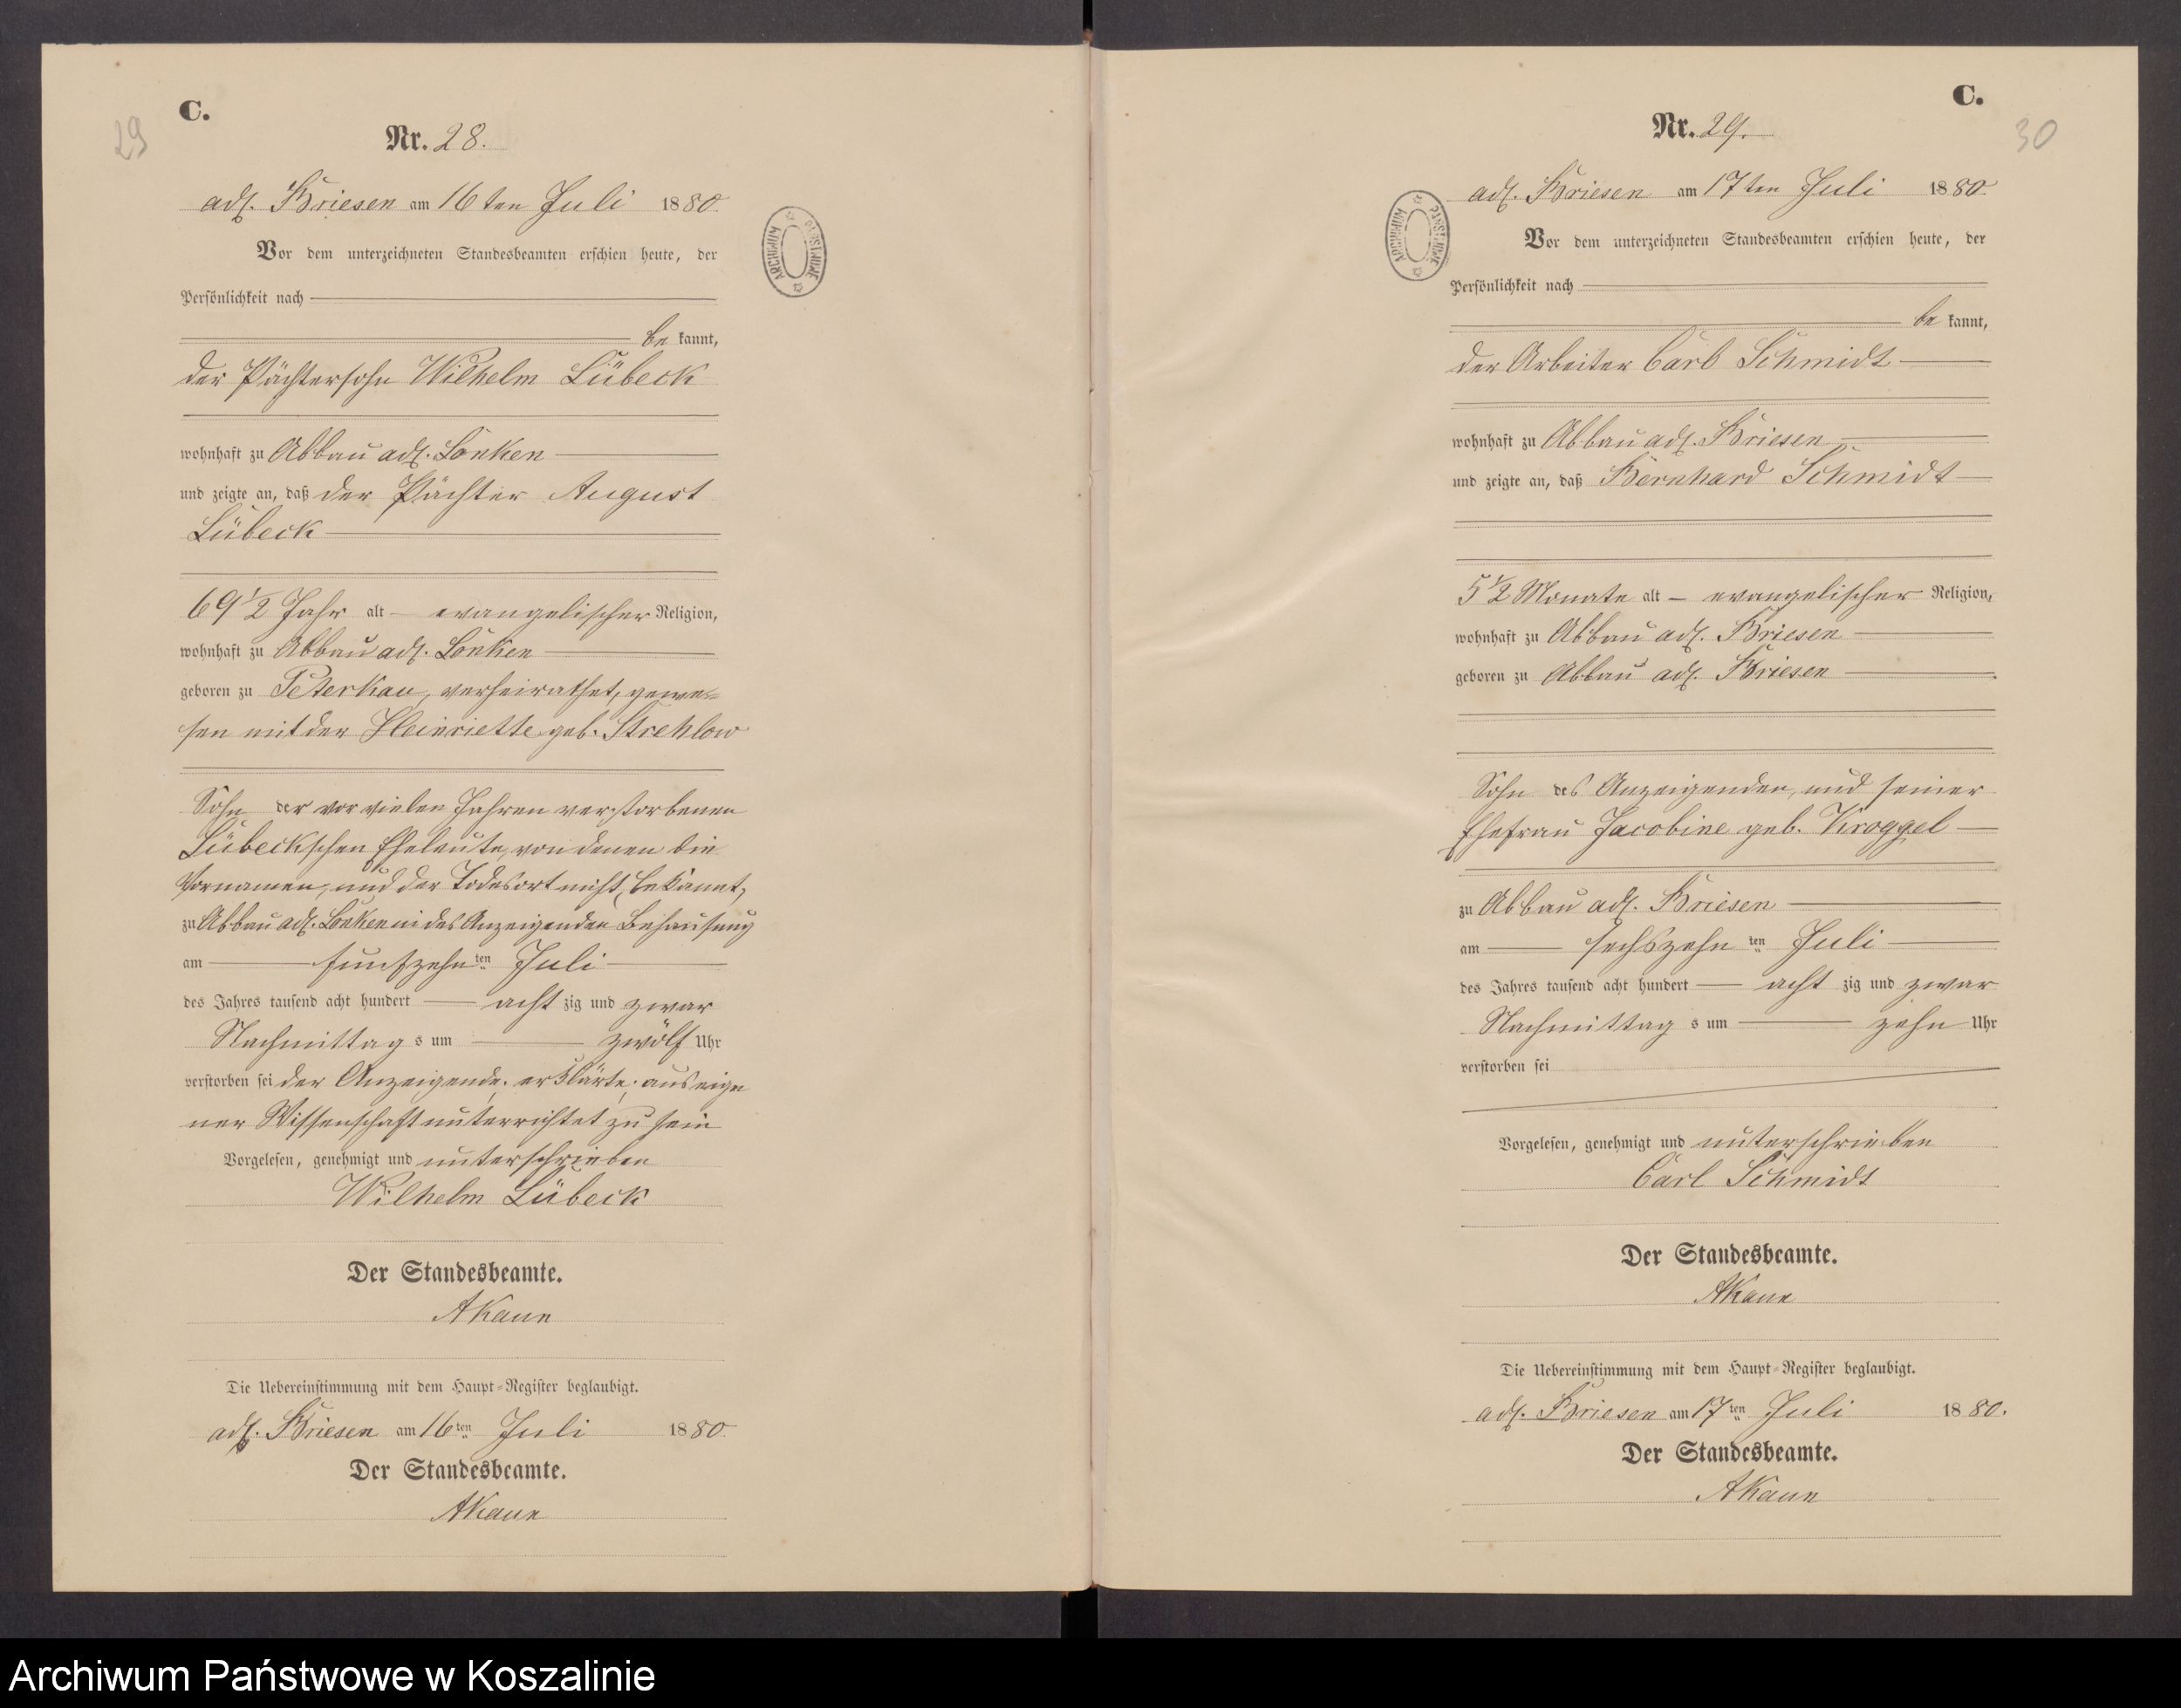 C.
29
Nr. 28.
adl. Briesen am 16ten Juli 1880.
Vor dem unterzeichneten Standesbeamten erschien heute, der
Persönlichkeit nach
be kannt,
der Pächtersohn Wilhelm Lübeck
wohnhaft zu Abbau adl. Lonken
und zeigte an, daß der Pächter August
Lübeck
69 1/2 Jahr alt evangelischer Religion,
wohnhaft zu Abbau adl. Lonken
geboren zu Peterkau, verheirathet, gewe-
sen mit der Heinriette geb. Strehlow
Sohn der vor vielen Jahren verstorbenen
Lübeckschen Eheleute, von denen die
Vornamen, und der Todesort nicht bekannt,
zu Abbau adl. Lonken in des Anzeigenden Behausung
am funfzehnten Juli
des Jahres tausend acht hundert acht zig und zwar
Nachmittag s um zwölf Uhr
verstorben sei der Anzeigende, erklärte, aus eige
ner Wissenschaft unterrichtet zu sein
Vorgelesen, genehmigt und unterschrieben
Wilhelm Lübeck
Der Standesbeamte.
AKaun
Die Uebereinstimmung mit dem Haupt-Register beglaubigt.
adl. Briesen am 16ten Juli 1880.
Der Standesbeamte.
AKaun
ARCHIWUM PAŃSTWOWE
C.
30
Nr. 29.
adl. Briesen am 17ten Juli 1880.
Vor dem unterzeichneten Standesbeamten erschien heute, der
Persönlichkeit nach
be kannt,
der Arbeiter Carl Schmidt
wohnhaft zu Abbau adl. Briesen
und zeigte an, daß Bernhard Schmidt
5 1/2 Monate alt evangelischer Religion,
wohnhaft zu Abbau adl. Briesen
geboren zu Abbau adl. Briesen
Sohn des Anzeigenden, und seiner
Ehefrau Jacobine geb. Kroggel
zu Abbau adl. Briesen
am sechszehnten Juli
des Jahres tausend acht hundert acht zig und zwar
Nachmittag s um zehn Uhr
verstorben sei
Vorgelesen, genehmigt und unterschrieben
Carl Schmidt
Der Standesbeamte.
AKaun
Die Uebereinstimmung mit dem Haupt-Register beglaubigt.
adl. Briesen am 17ten Juli 1880.
Der Standesbeamte.
AKaun
ARCHIWUM PAŃSTWOWE
Archiwum Państwowe w Koszalinie